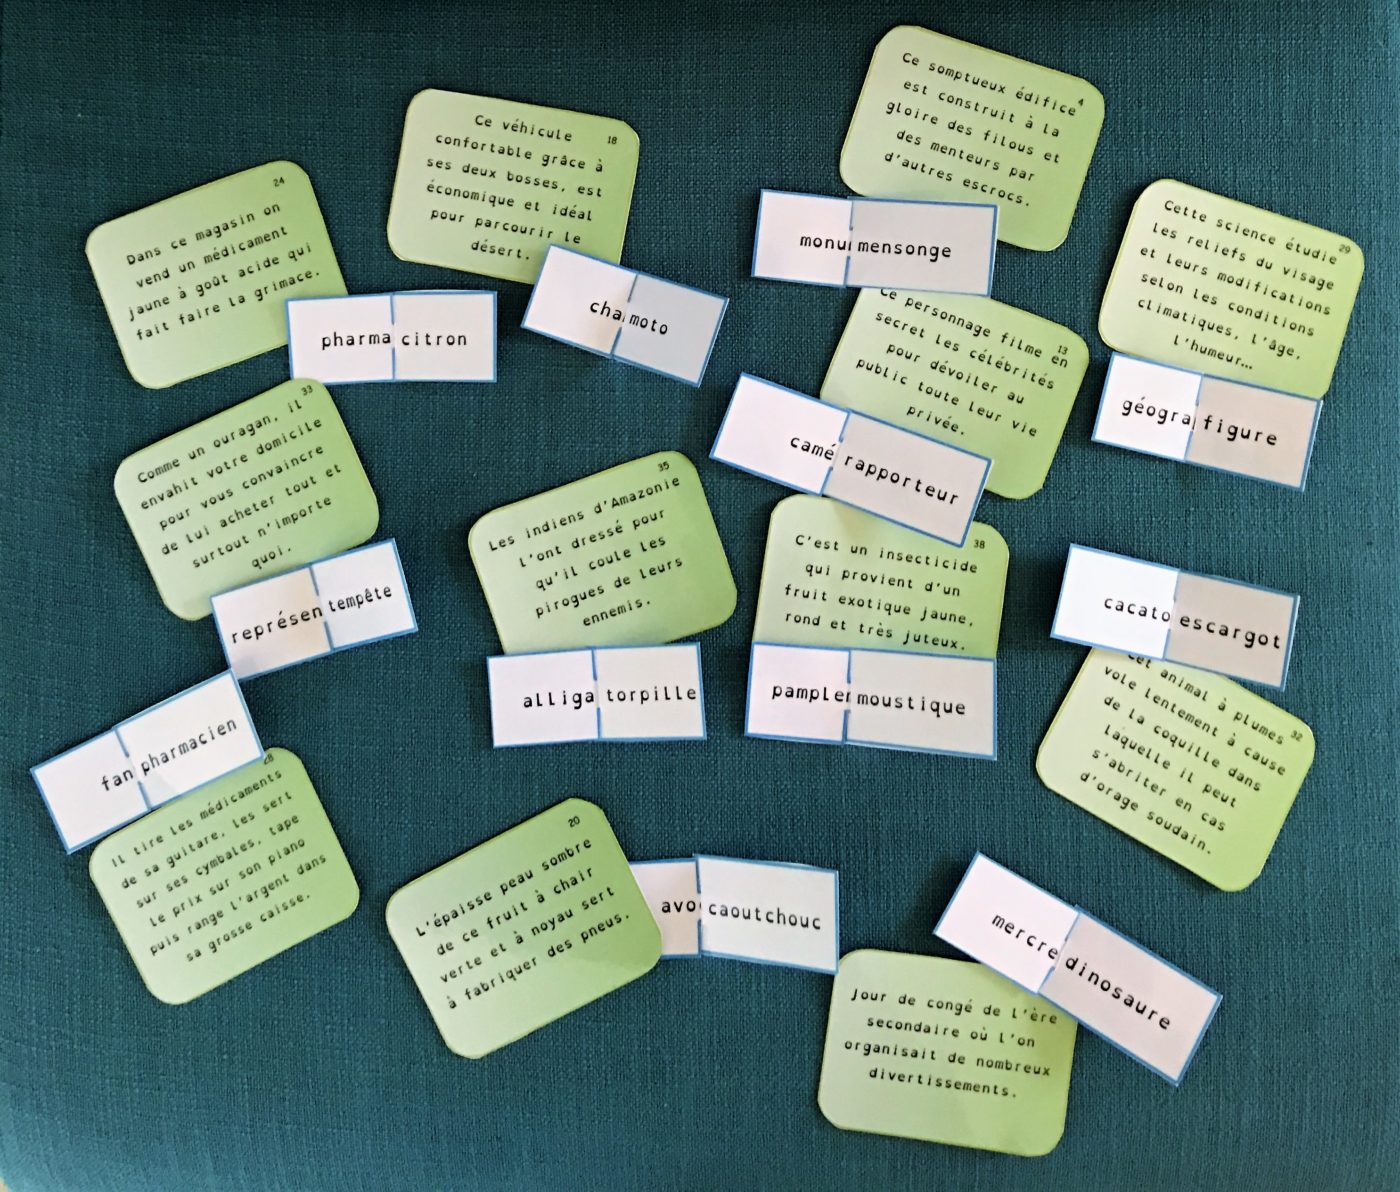 24
Dans ce magasin on
vend un médicament
jaune à goût acide qui
fait faire la grimace.
pharma citron
18
Ce véhicule
confortable grâce à
ses deux bosses, est
économique et idéal
pour parcourir le
désert.
cha moto
4
Ce somptueux édifice
est construit à la
gloire des filous et
des menteurs par
d'autres escrocs.
monu mensonge
29
Cette science étudie
les reliefs du visage
et leurs modifications
selon les conditions
climatiques, l'âge,
l'humeur...
géogra figure
13
Ce personnage filme en
secret les célébrités
pour dévoiler au
public toute leur vie
privée.
camé rapporteur
33
Comme un ouragan, il
envahit votre domicile
pour vous convaincre
de lui acheter tout et
surtout n'importe
quoi.
représen tempête
35
Les indiens d'Amazonie
l'ont dressé pour
qu'il coule les
pirogues de leurs
ennemis.
alliga torpille
38
C'est un insecticide
qui provient d'un
fruit exotique jaune,
rond et très juteux.
pample moustique
cacato escargot
32
Cet animal à plumes
vole lentement à cause
de la coquille dans
laquelle il peut
s'abriter en cas
d'orage soudain.
fan pharmacien
28
Il tire les médicaments
de sa guitare, les sert
sur ses cymbales, tape
le prix sur son piano
puis range l'argent dans
sa grosse caisse.
20
L'épaisse peau sombre
de ce fruit à chair
verte et à noyau sert
à fabriquer des pneus.
avo caoutchouc
mercre dinosaure
Jour de congé de l'ère
secondaire où l'on
organisait de nombreux
divertissements.